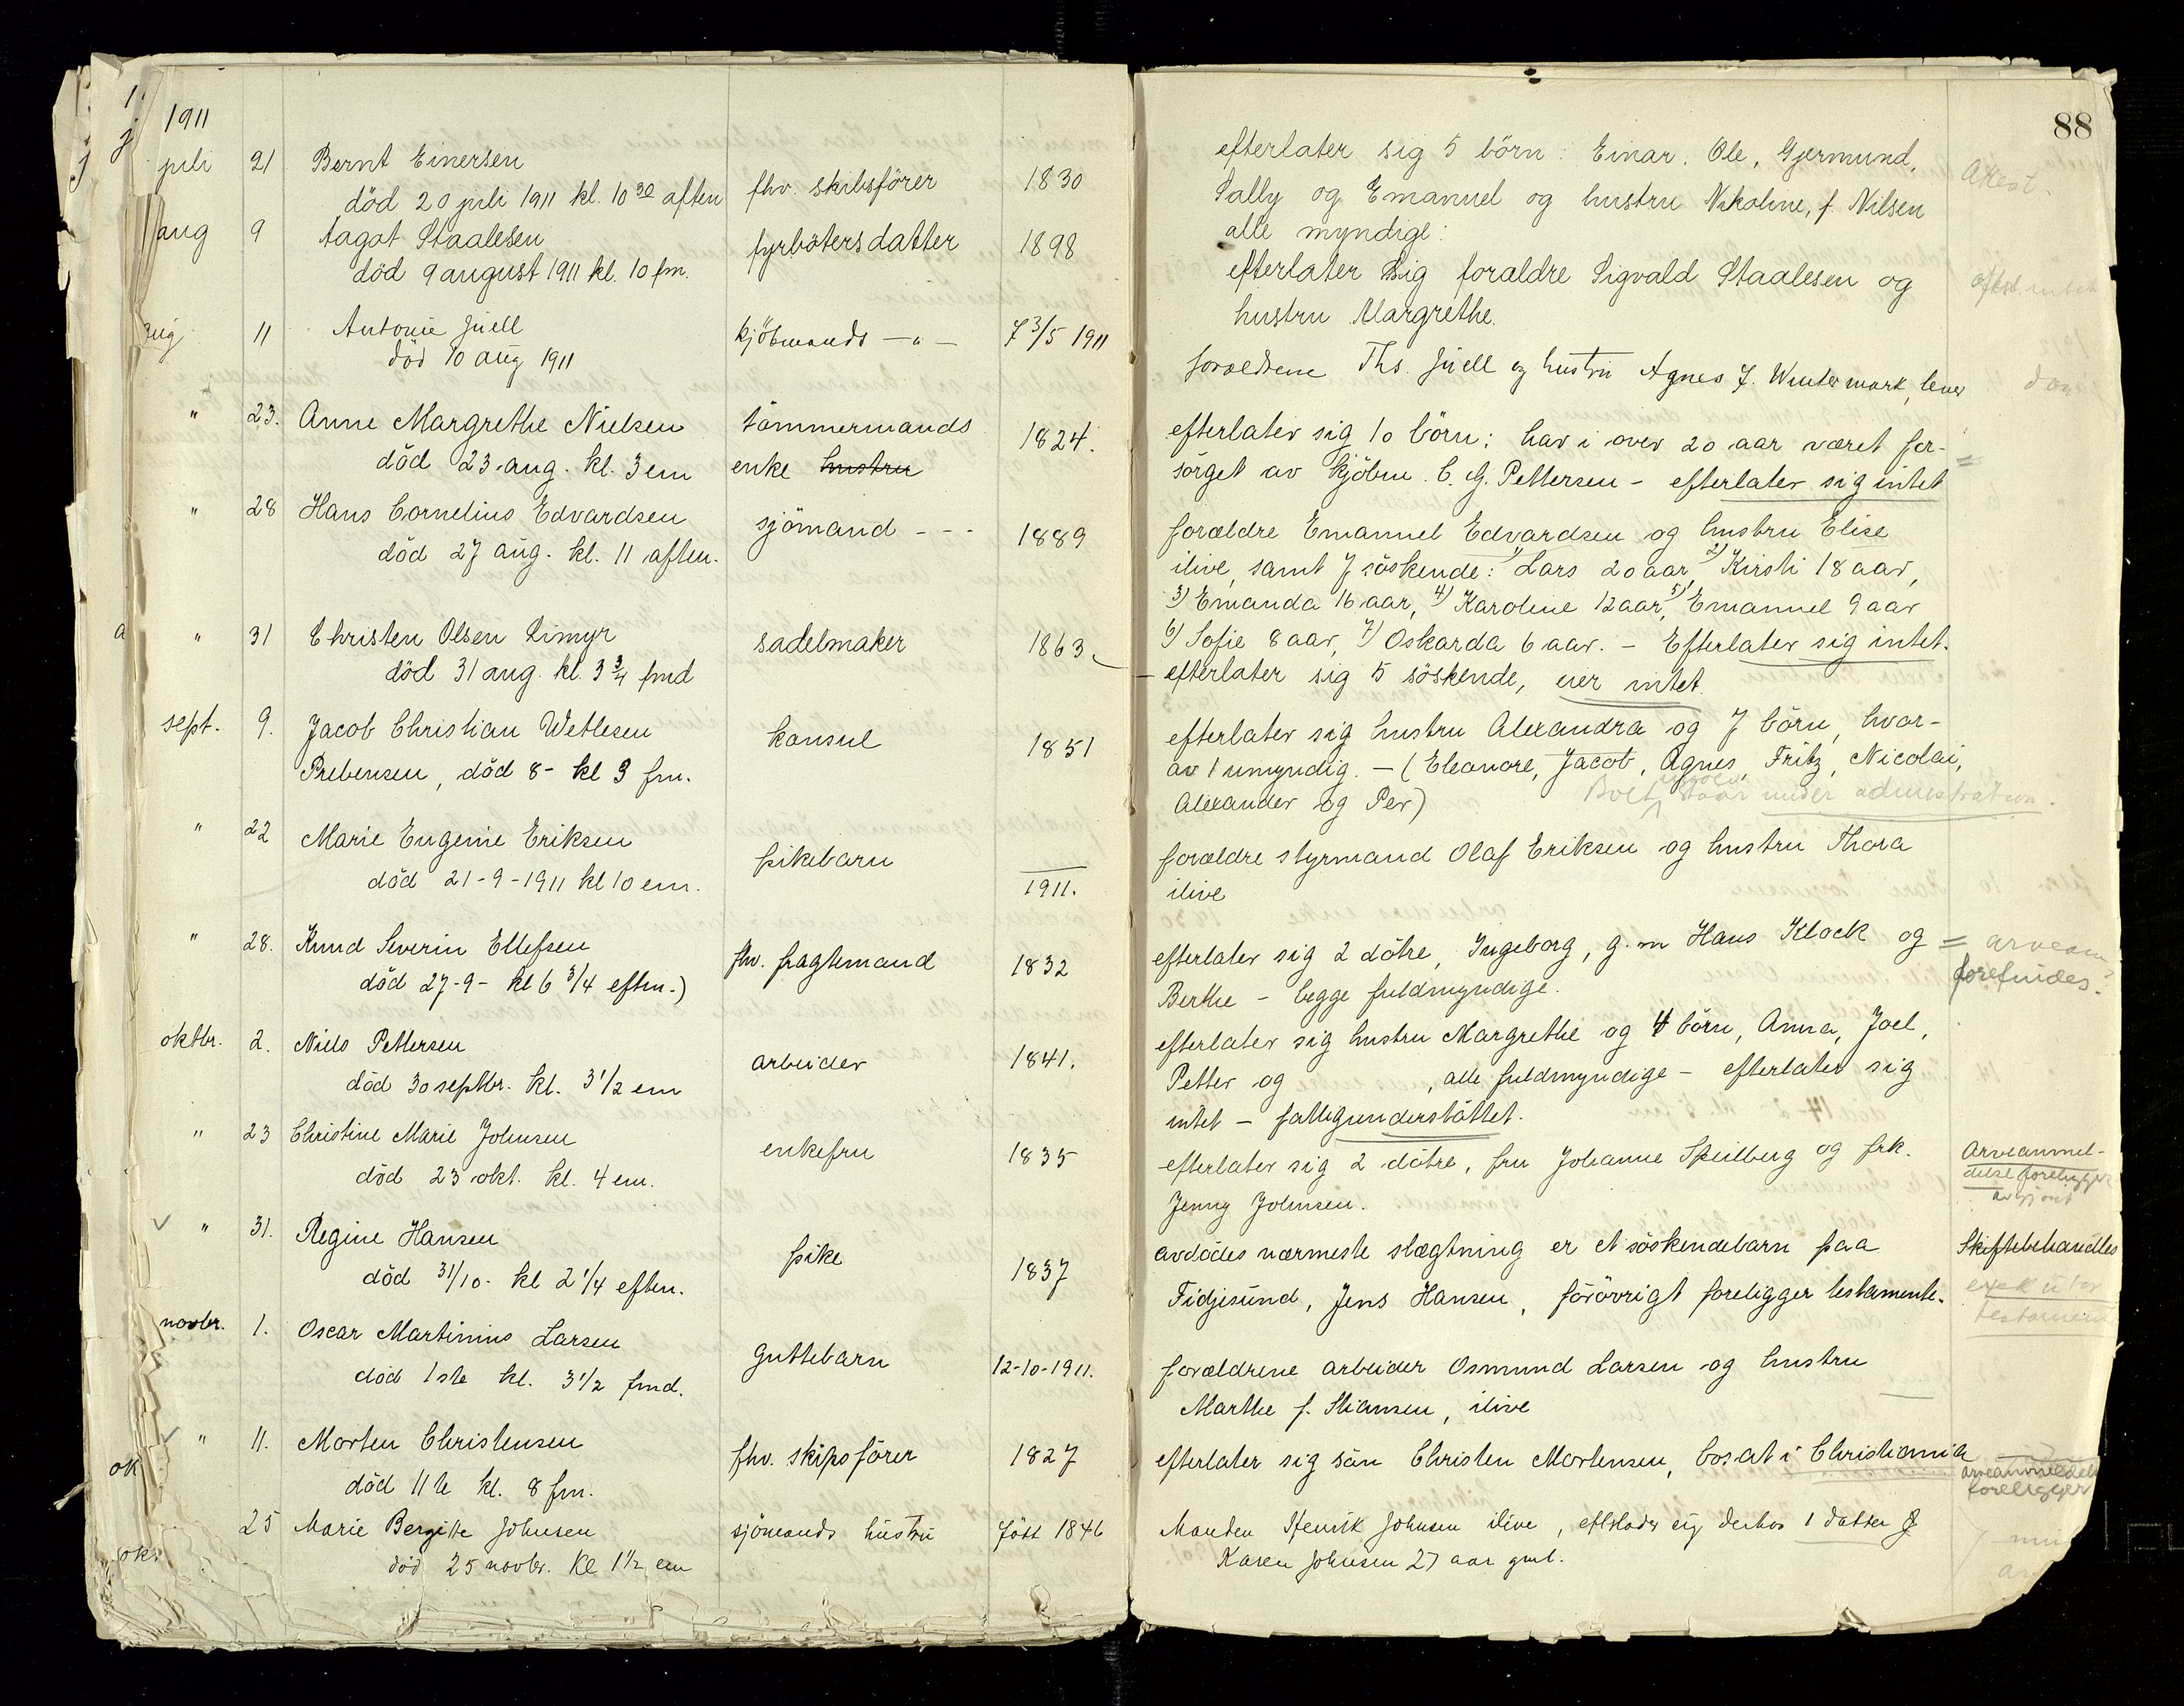 88
1911
juli 21 Bernt Einersen
död 20 juli 1911 kl. 10 30 aften fhv. skibsförer 1830
efterlater sig 5 börn: Einar. Ole, Gjermund,
Sally og Emanuel og hustru Nikoline, f. Nilsen
alle myndige:
Attest.
aug 9 Aagot Staalesen
död 9 august 1911 kl. 10 fm. fyrböters datter 1898
efterlater sig forældre Sigvald Staalesen og
hustru Margrethe.
aug 11 Antonie Juell
död 10 aug 1911 kjöbmands — " — f 3/5 1911
forældrene Ths. Juell og hustru Agnes f. Wintermark, lever
" 23. Anne Margrethe Nielsen tömmermands
död 23. aug. kl. 3 em enke hustru 1824.
efterlater sig 10 börn: har i over 20 aar været for-
sörget av kjöbm. C. G. Pettersen - efterlater sig intet
" 28 Hans Cornelius Edvardsen
död 27 aug. kl. 11 aften. sjömand - - - 1889
forældre Emanuel Edvardsen og hustru Elise
ilive, samt 7 söskende: 1) Lars 20 aar, 2) Kirsti 18 aar,
3) Emanda 16 aar, 4) Karoline 12 aar, 5) Emanuel 9 aar
6) Sofie 8 aar, 7) Oskarda 6 aar. - Efterlater sig intet.
" 31 Christen Olsen Limyr
död 31 aug. kl. 3 3/4 fmd sadelmaker 1863
efterlater sig 5 söskende, eier intet.
sept. 9. Jacob Christian Wetlesen
Prebensen, död 8- kl 9 fm. konsul 1851
efterlater sig hustru Alexandra og 7 börn, hvor-
av 1 umyndig. - (Eleonore, Jacob, Agnes, Fritz, Nicolai,
Alexander og Per)
Boet staar under administration.
" 22 Marie Eugenie Eriksen
död 21-9-1911 kl 10 em. pikebarn 1911.
forældre styrmand Olaf Eriksen og hustru Thora
ilive
" 28. Knud Severin Ellefsen
död 27-9- kl 6 3/4 eftm.) fhv. fragtemand 1832
efterlater sig 2 dötre, Ingeborg, g. m Hans Klock og
Berthe - begge fuldmyndige.
forefindes.
oktbr. 2. Niels Pettersen
död 30 septbr. kl. 3 1/2 em arbeider 1841.
efterlater sig hustru Margrethe og 4 börn, Anna, Joel,
Petter og , alle fuldmyndige - efterlater sig
intet - fattigunderstöttet.
" 23 Christine Marie Johnsen
död 23 okt. kl. 4 em. enkefru 1835
efterlater sig 2 dötre, fru Johanne Speilberg og frk.
Jenny Johnsen.
Arveanmel-
delse foreligger
avgjort
" 31. Regine Hansen
död 31/10- kl 2 1/4 eftm. pike 1837
avdödes nærmeste slægtning er et söskendebarn paa
Fidjesund, Jens Hansen, forövrigt foreligger testamente.
Skiftebehandles
novbr. 1. Oscar Martinius Larsen
död 1ste kl. 3 1/2 fmd. guttebarn 12-10-1911.
forældrene arbeider Osmund Larsen og hustru
Marthe f. Stiansen, ilive
ok " 11. Morten Christensen
död 11te kl. 8 fm. fhv. skipsförer 1827
efterlater sig sön Christen Mortensen, bosat i Christiania
arveanmeldelse
foreligger
ok. 25 Marie Bergitte Johnsen
död 25 novbr. kl 1 1/2 em sjömands hustru född 1846
Manden Henrik Johnsen ilive, efterlader sig derhos 1 datter
Karen Johnsen 27 aar gml.